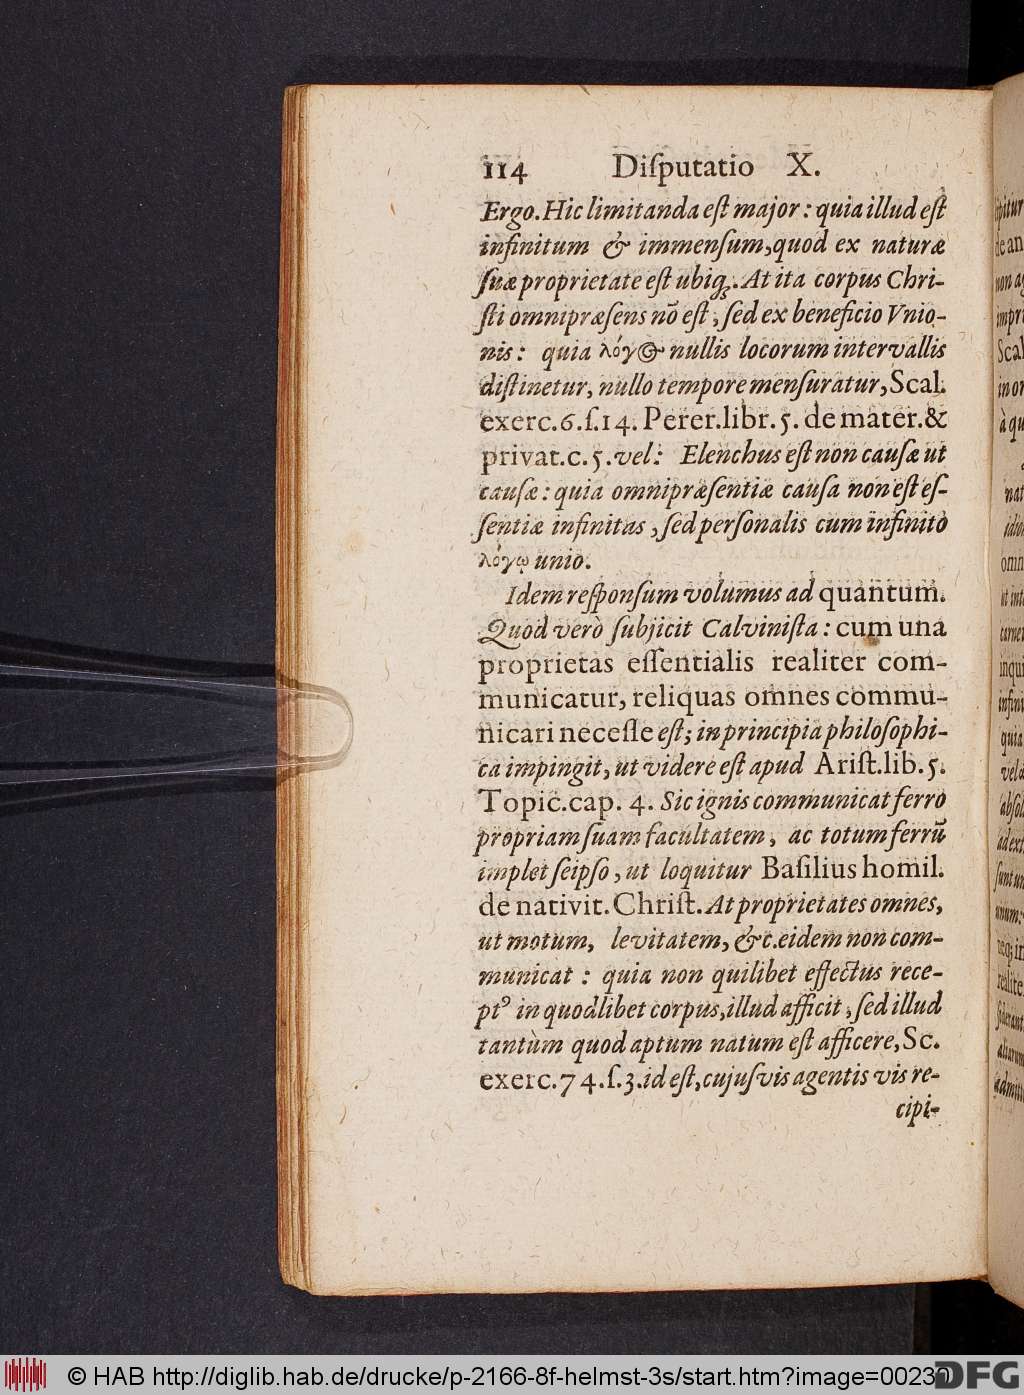 114 Diſputatio X.
Ergo. Hic limitanda eſt major: quia illud eſt
infinitum & immenſum, quod ex naturæ
ſuæ proprietate eſt ubiq́;. At ita corpus Chri-
ſti omnipræſens nō eſt, ſed ex beneficio Vnio-
nis: quia λόγ&c nullis locorum intervallis
diſtinetur, nullo tempore menſuratur, Scal.
exerc. 6. ſ. 14. Perer. libr. 5. de mater. &
privat. c. 5. vel: Elenchus eſt non cauſæ ut
cauſæ: quia omnipræſentiæ cauſa non eſt eſ-
ſentiæ infinitas, ſed perſonalis cum infinito
λόγῳ unio.
Idem reſponſum volumus ad quantum.
Quod verò ſubjicit Calviniſta: cum una
proprietas eſſentialis realiter com-
municatur, reliquas omnes commu-
nicari neceſſe eſt; in principia philoſophi-
ca impingit, ut videre eſt apud Ariſt. lib. 5.
Topic. cap. 4. Sic ignis communicat ferro
propriam ſuam facultatem, ac totum ferrū
implet ſeipſo, ut loquitur Baſilius homil.
de nativit. Chriſt. At proprietates omnes,
ut motum, levitatem, &c. eidem non com-
municat: quia non quilibet effectus rece-
ptꝰ in quodlibet corpus, illud afficit, ſed illud
tantùm quod aptum natum eſt afficere, Sc.
exerc. 74. ſ. 3. id eſt, cujuſvis agentis vis re-
cipi-
© HAB http://diglib.hab.de/drucke/p-2166-8f-helmst-3s/start.htm?image=00230
DFG